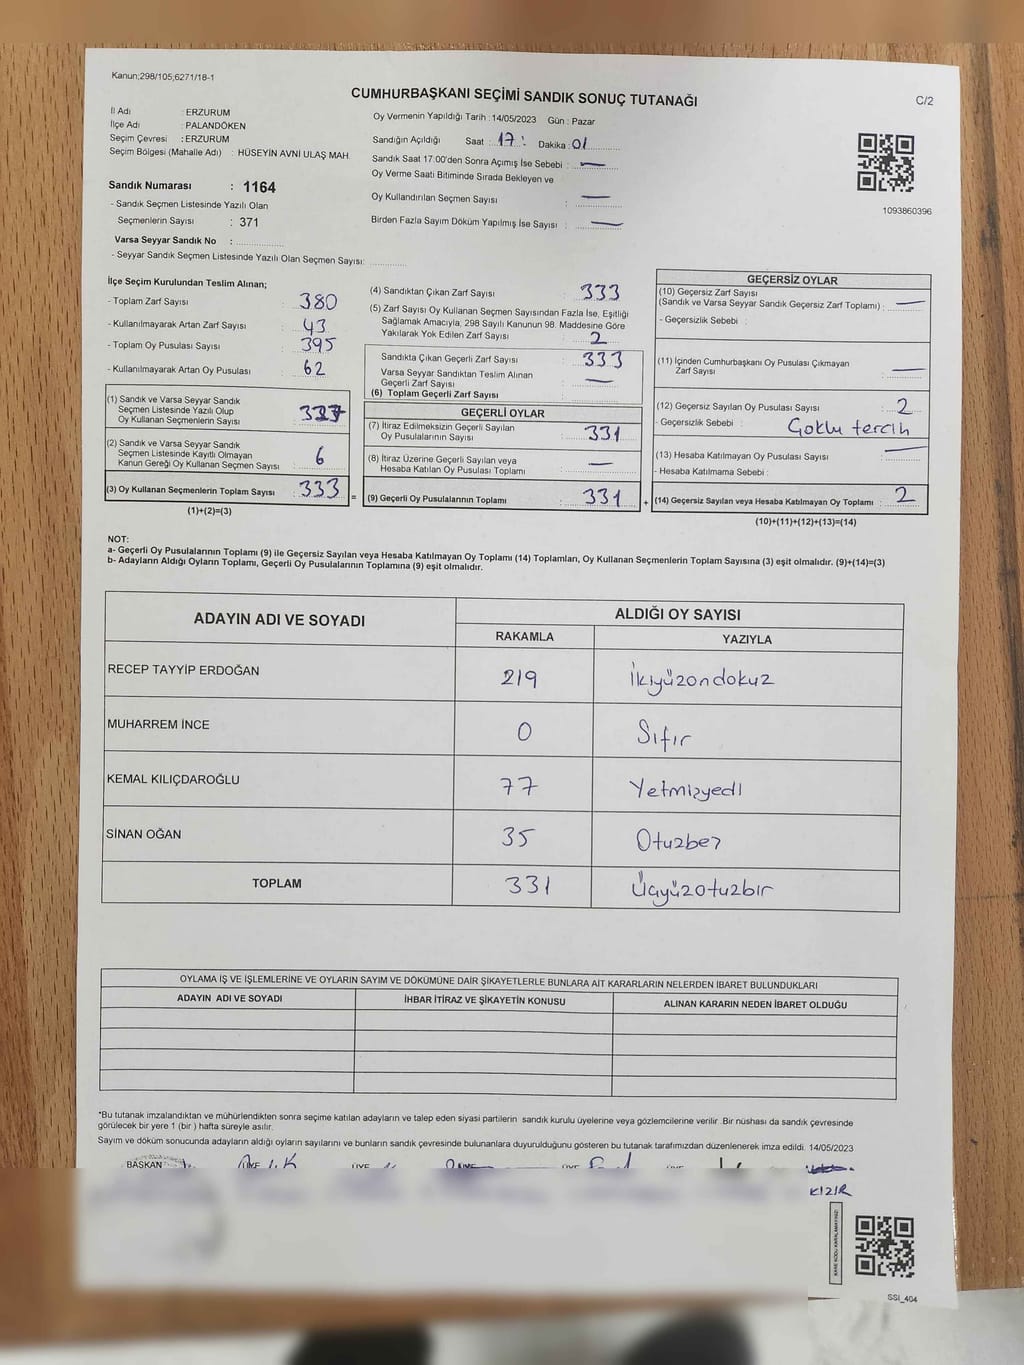 Kanun;298/105;6271/18-1
CUMHURBAŞKANI SEÇİMİ SANDIK SONUÇ TUTANAĞI
C/2
İl Adı : ERZURUM
İlçe Adı : PALANDÖKEN
Seçim Çevresi : ERZURUM
Seçim Bölgesi (Mahalle Adı) : HÜSEYİN AVNİ ULAŞ MAH.
Sandık Numarası : 1164
- Sandık Seçmen Listesinde Yazılı Olan
Seçmenlerin Sayısı : 371
Varsa Seyyar Sandık No :
- Seyyar Sandık Seçmen Listesinde Yazılı Olan Seçmen Sayısı:
Oy Vermenin Yapıldığı Tarih : 14/05/2023 Gün : Pazar
Sandığın Açıldığı Saat : 17 : Dakika : 01
Sandık Saat 17:00'den Sonra Açımış İse Sebebi : —
Oy Verme Saati Bitiminde Sırada Bekleyen ve
Oy Kullandırılan Seçmen Sayısı : —
Birden Fazla Sayım Döküm Yapılmış İse Sayısı : —
1093860396
İlçe Seçim Kurulundan Teslim Alınan;
- Toplam Zarf Sayısı : 380
- Kullanılmayarak Artan Zarf Sayısı : 43
- Toplam Oy Pusulası Sayısı : 395
- Kullanılmayarak Artan Oy Pusulası : 62
(1) Sandık ve Varsa Seyyar Sandık
Seçmen Listesinde Yazılı Olup
Oy Kullanan Seçmenlerin Sayısı : 327
(2) Sandık ve Varsa Seyyar Sandık
Seçmen Listesinde Kayıtlı Olmayan
Kanun Gereği Oy Kullanan Seçmen Sayısı : 6
(3) Oy Kullanan Seçmenlerin Toplam Sayısı : 333 =
(1)+(2)=(3)
(4) Sandıktan Çıkan Zarf Sayısı : 333
(5) Zarf Sayısı Oy Kullanan Seçmen Sayısından Fazla İse, Eşitliği
Sağlamak Amacıyla, 298 Sayılı Kanunun 98. Maddesine Göre
Yakılarak Yok Edilen Zarf Sayısı : 2
Sandıkta Çıkan Geçerli Zarf Sayısı : 333
Varsa Seyyar Sandıktan Teslim Alınan
Geçerli Zarf Sayısı : —
(6) Toplam Geçerli Zarf Sayısı
GEÇERLİ OYLAR
(7) İtiraz Edilmeksizin Geçerli Sayılan
Oy Pusulalarının Sayısı : 331
(8) İtiraz Üzerine Geçerli Sayılan veya
Hesaba Katılan Oy Pusulası Toplamı : —
(9) Geçerli Oy Pusulalarının Toplamı : 331 +
GEÇERSİZ OYLAR
(10) Geçersiz Zarf Sayısı
(Sandık ve Varsa Seyyar Sandık Geçersiz Zarf Toplamı) : —
- Geçersizlik Sebebi :
(11) İçinden Cumhurbaşkanı Oy Pusulası Çıkmayan
Zarf Sayısı : —
(12) Geçersiz Sayılan Oy Pusulası Sayısı : 2
- Geçersizlik Sebebi : Çoklu tercih
(13) Hesaba Katılmayan Oy Pusulası Sayısı : —
- Hesaba Katılmama Sebebi :
(14) Geçersiz Sayılan veya Hesaba Katılmayan Oy Toplamı : 2
(10)+(11)+(12)+(13)=(14)
NOT:
a- Geçerli Oy Pusulalarının Toplamı (9) ile Geçersiz Sayılan veya Hesaba Katılmayan Oy Toplamı (14) Toplamları, Oy Kullanan Seçmenlerin Toplam Sayısına (3) eşit olmalıdır. (9)+(14)=(3)
b- Adayların Aldığı Oyların Toplamı, Geçerli Oy Pusulalarının Toplamına (9) eşit olmalıdır.
ADAYIN ADI VE SOYADI
ALDIĞI OY SAYISI
RAKAMLA YAZIYLA
RECEP TAYYİP ERDOĞAN 219 İkiyüzondokuz
MUHARREM İNCE 0 Sıfır
KEMAL KILIÇDAROĞLU 77 Yetmişyedi
SİNAN OĞAN 35 Otuzbeş
TOPLAM 331 Üçyüzotuzbir
OYLAMA İŞ VE İŞLEMLERİNE VE OYLARIN SAYIM VE DÖKÜMÜNE DAİR ŞİKAYETLERLE BUNLARA AİT KARARLARIN NELERDEN İBARET BULUNDUKLARI
ADAYIN ADI VE SOYADI İHBAR İTİRAZ VE ŞİKAYETİN KONUSU ALINAN KARARIN NEDEN İBARET OLDUĞU
*Bu tutanak imzalandıktan ve mühürlendikten sonra seçime katılan adayların ve talep eden siyasi partilerin sandık kurulu üyelerine veya gözlemcilerine verilir. Bir nüshası da sandık çevresinde
görülecek bir yere 1 (bir ) hafta süreyle asılır.
Sayım ve döküm sonucunda adayların aldığı oyların sayılarını ve bunların sandık çevresinde bulunanlara duyurulduğunu gösteren bu tutanak tarafımızdan düzenlenerek imza edildi. 14/05/2023
BAŞKAN
KIZIR
SSİ_404